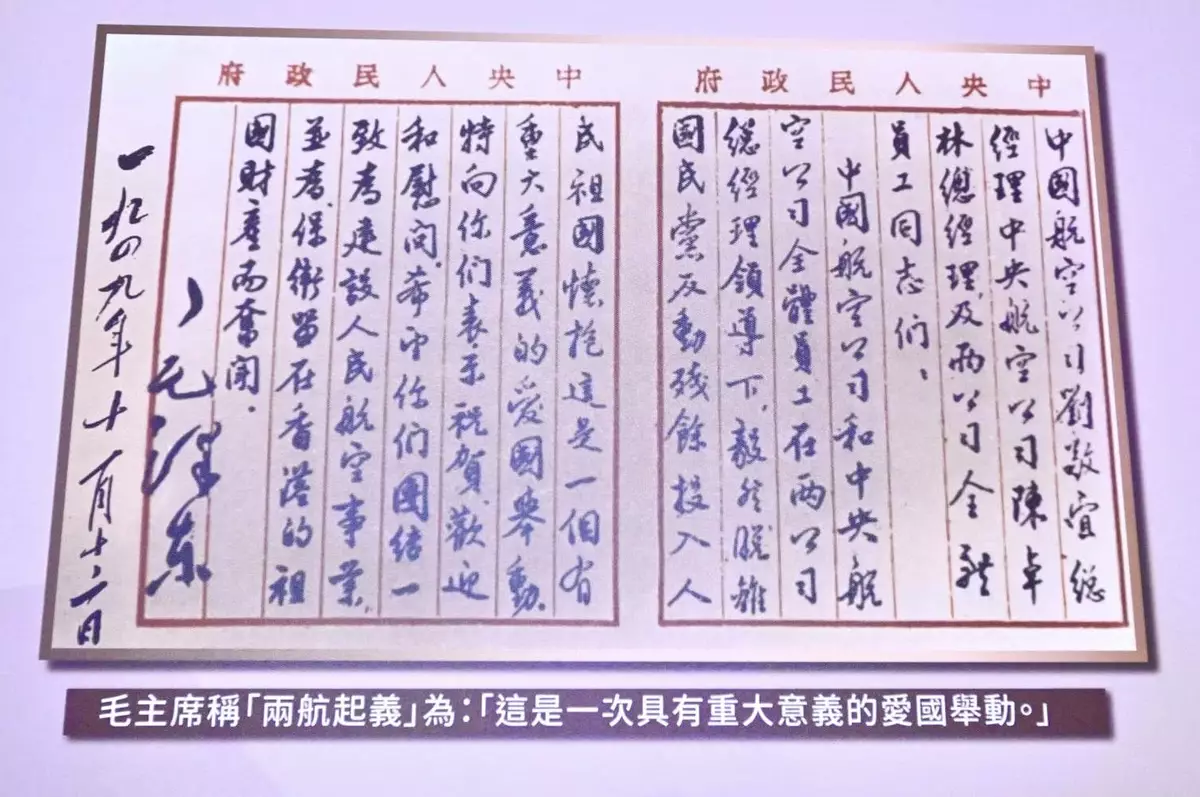 中央人民政府
中國航空公司劉敬宜總
經理中央航空公司陳卓
林總經理及兩公司全體
員工同志們：
中國航空公司和中央航
空公司全體員工在兩公司
總經理領導下，毅然脫離
國民黨反動殘餘投入人
中央人民政府
民祖國懷抱這是一個有
重大意義的愛國舉動。
特向你們表示祝賀、歡迎
和慰問。希望你們團結一
致為建設人民航空事業，
並為保衛留在香港的祖
國財產而奮鬥。
毛澤東
一九四九年十一月十二日
毛主席稱「兩航起義」為：「這是一次具有重大意義的愛國舉動。」